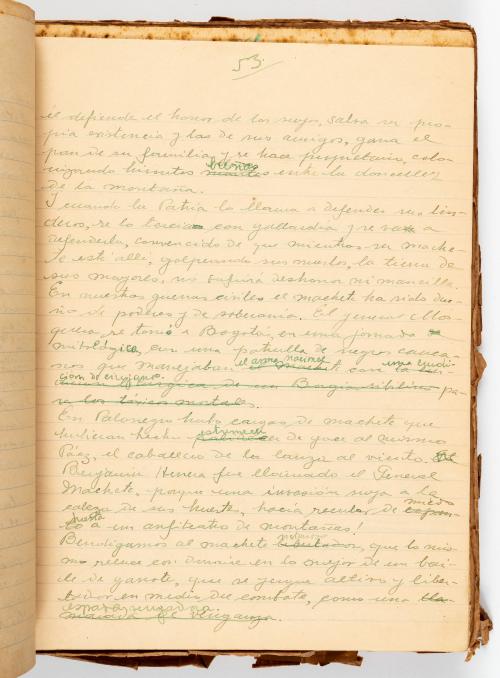 53.
él defiende el honor de los suyos, salva su pro-
pia existencia y las de sus amigos, gana el
pan de su familia y se hace propietario, colo-
nizando hirsutos breñas entre la doncellez
de la montaña.
Y cuando la Patria lo llama a defender sus lin-
deros, se lo tercia con gallardía y se va a
defenderla, convencido de que mientras su mache-
te esté allí, golpeando sus muslos, la tierra de
sus mayores, no sufrirá deshonor ni mancilla.
En nuestras guerras civiles el machete ha sido due-
ño de poderes y de soberanía. El general Mos-
quera, se tomó a Bogotá, en una jornada
mitológica, con una patrulla de negros cauca-
nos que manejaban el arma nacional con la
ción de cirujanos.
pa-
ra los tórax mortales.
En Palonegro hubo cargas de machete que
hubieran hecho estremecer de goce al mismo
Páez, el caballero de la lanza al viento.
Benjamín Herrera fue llamado el General
Machete, porque una invasión roja a la
cabeza de sus huestes, hacía recular de miedo
hasta a un anfiteatro de montañas!
Bendigamos al machete que lo mis-
mo reluce con donaire en lo mejor de un bai-
le de garrote, que se yergue altivo y liber-
tador en medio del combate, como una
espada vengadora.